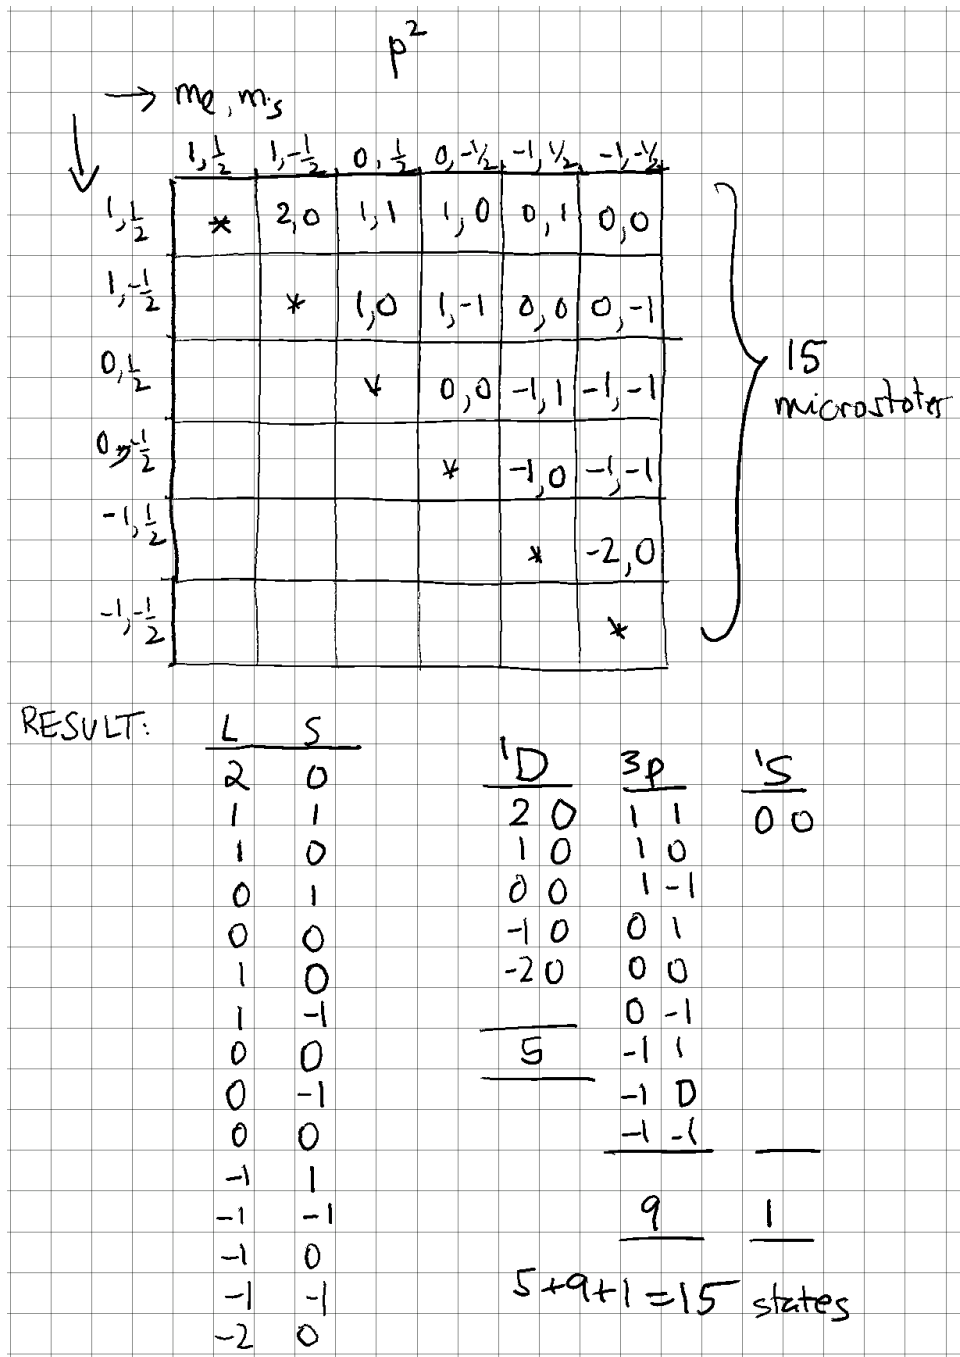 p²
→ mℓ, ms
↓
1,½ 1,-½ 0,½ 0,-½ -1,½ -1,-½
1,½ * 2,0 1,1 1,0 0,1 0,0
1,-½ * 1,0 1,-1 0,0 0,-1
0,½ * 0,0 -1,1 -1,-1
0,-½ * -1,0 -1,-1
-1,½ * -2,0
-1,-½ *
15
microstates
RESULT:
L S
2 0
1 1
1 0
0 1
0 0
1 0
1 -1
0 0
0 -1
0 0
-1 1
-1 -1
-1 0
-1 -1
-2 0
¹D
2 0
1 0
0 0
-1 0
-2 0
5
³P
1 1
1 0
1 -1
0 1
0 0
0 -1
-1 1
-1 0
-1 -1
9
¹S
0 0
1
5+9+1=15 states